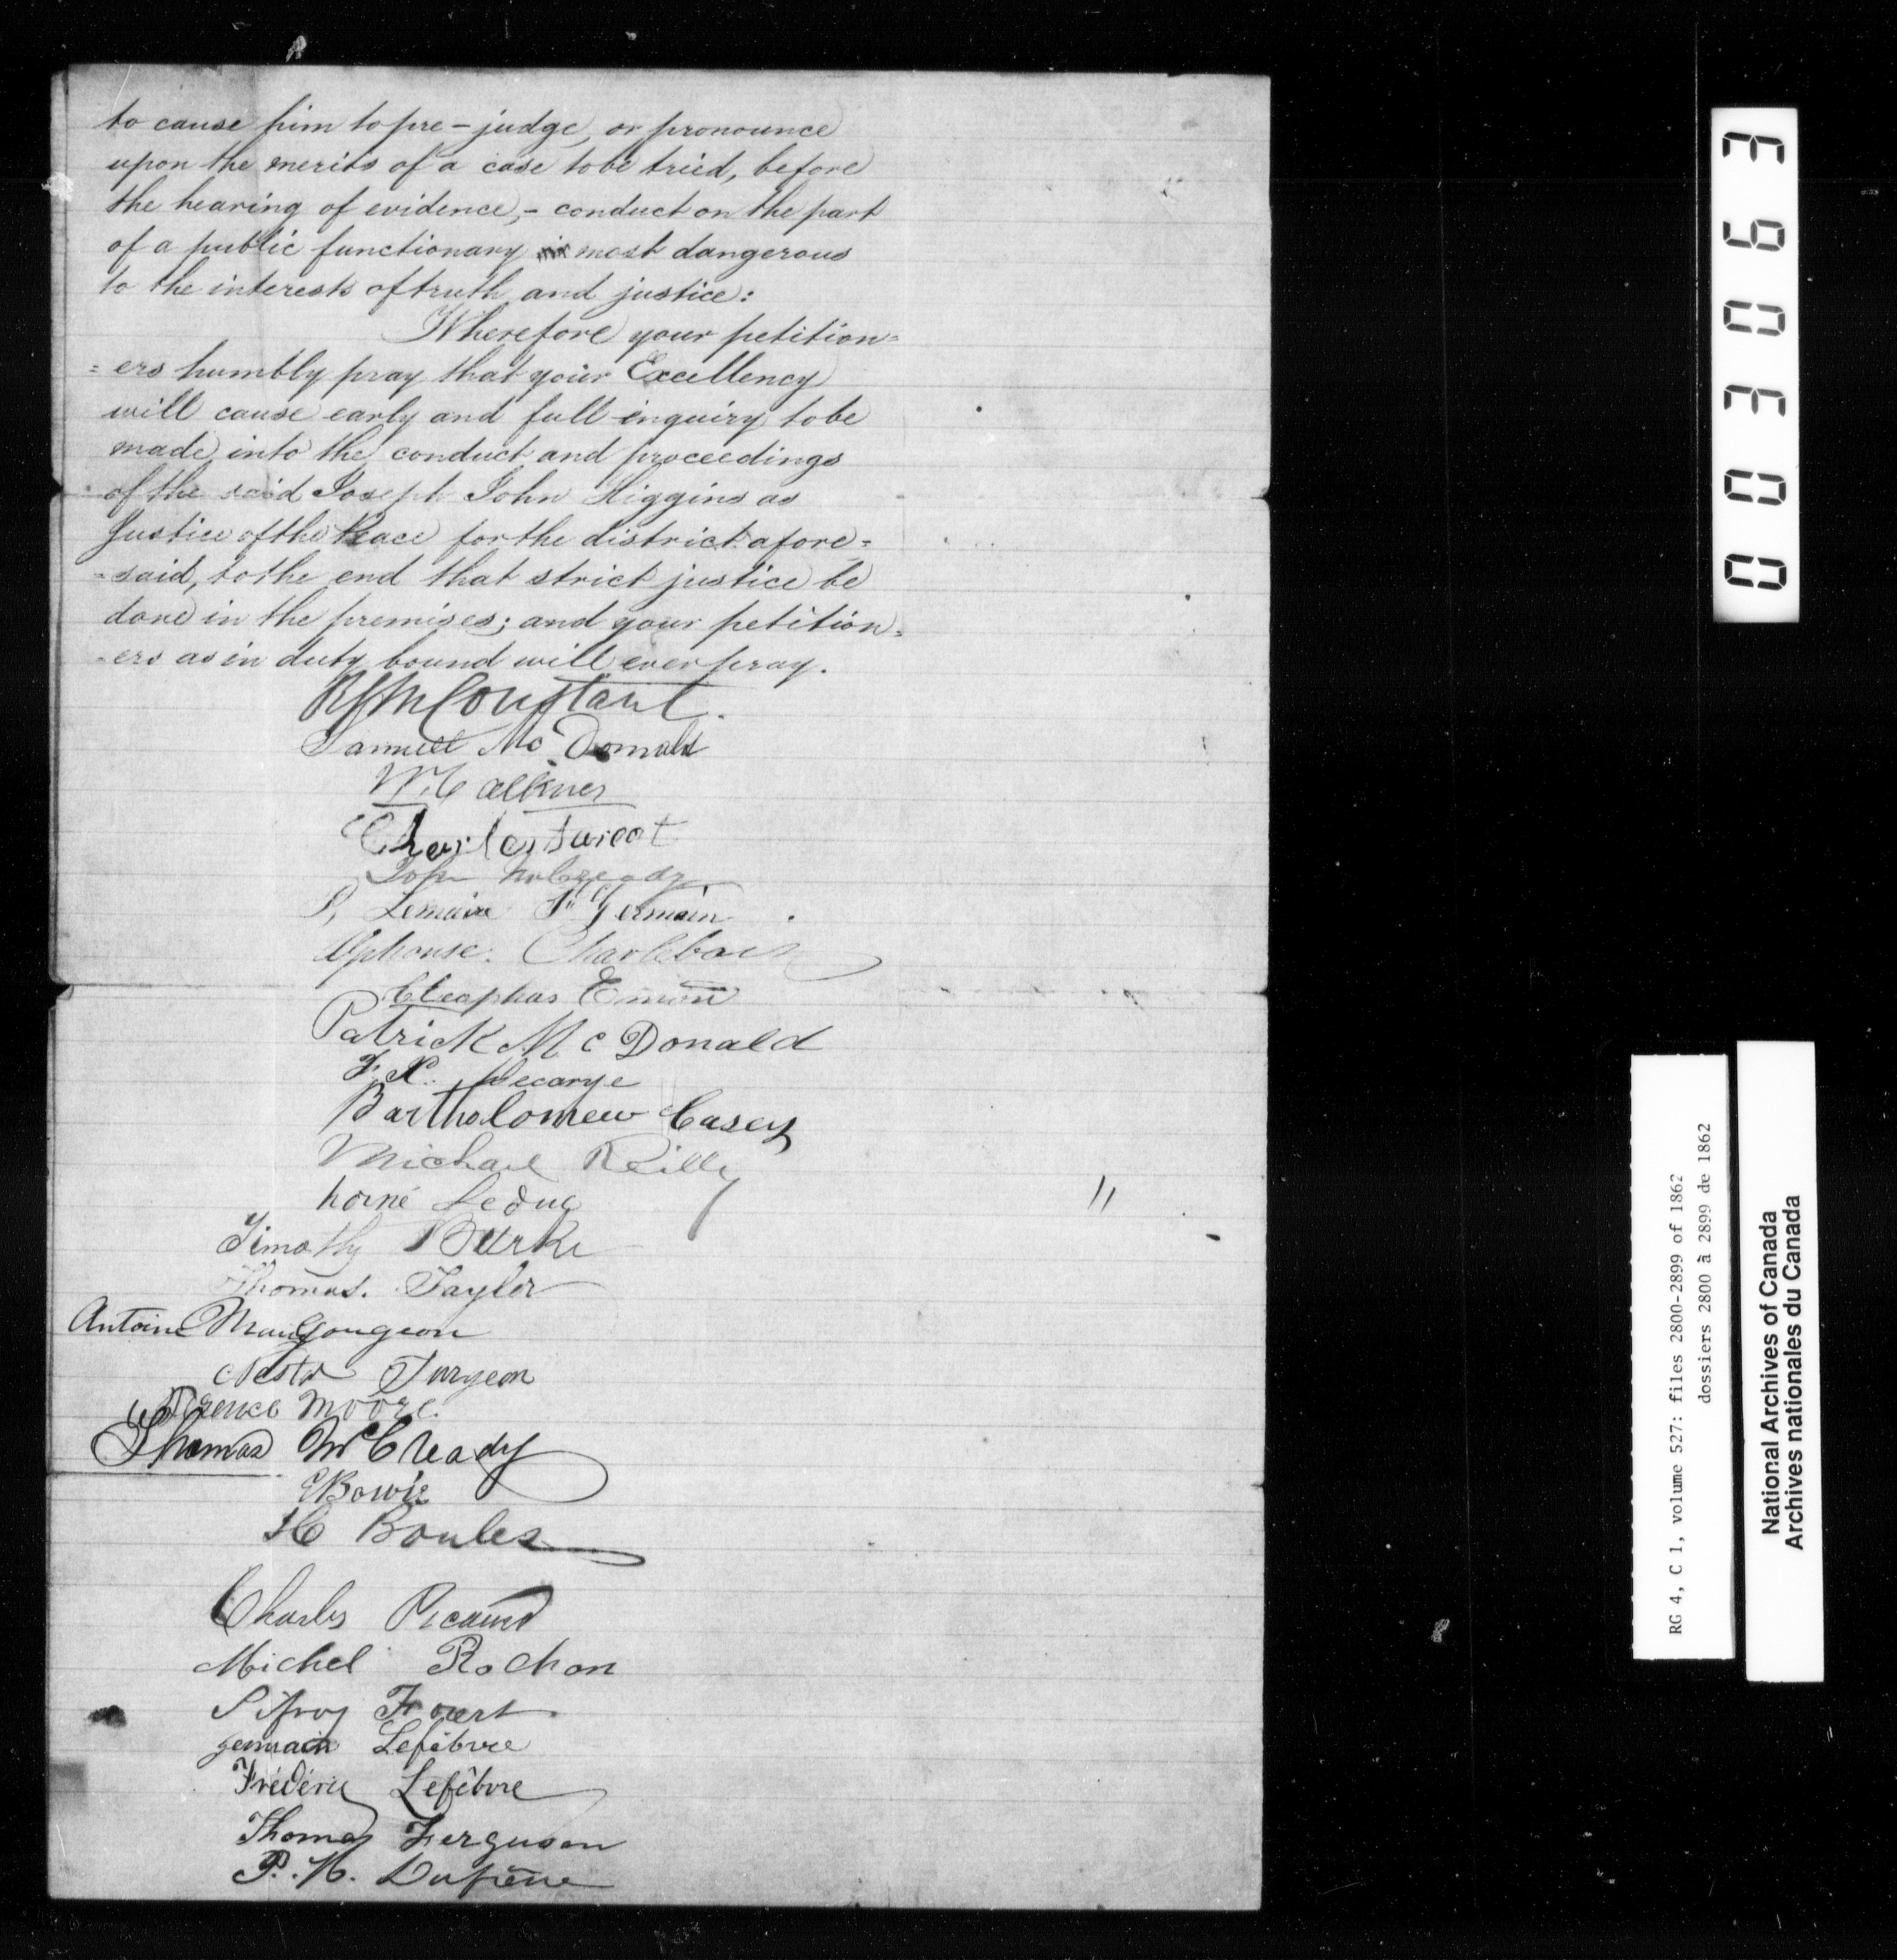 to cause him to pre-judge, or pronounce
upon the merits of a case to be tried, before
the hearing of evidence,- conduct on the part
of a public functionary most dangerous
to the interests of truth and justice:
Wherefore your petition=
=ers humbly pray that your Excellency
will cause early and full inquiry to be
made into the conduct and proceedings
of the said Joseph John Higgins as
Justice of the Peace for the district afore=
=said, to the end that strict justice be
done in the premises; and your petition=
=ers as in duty bound will ever pray.
Constant.
Samuel Mc Donald
Charles Turcot
John McCready
P, Lemaire St Germain
Alphonse. Charlebois
Cleophas Emon
Patrick McDonald
F. X. Decarye
Bartholomew Casey
Michael Reilly
Leduc
Timothy Burke
Thomas. Taylor
Antoine Gougeon
Nestor Turgeon
Moore.
Thomas McCready
Bowie
Boules
Charles Picard
Michel Rochon
Germain Lefebvre
Fréderic Lefebvre
Thomas Ferguson
P. H. Dufrène
003063
RG 4, C 1, volume 527: files 2800-2899 of 1862
dossiers 2800 à 2899 de 1862
National Archives of Canada
Archives nationales du Canada